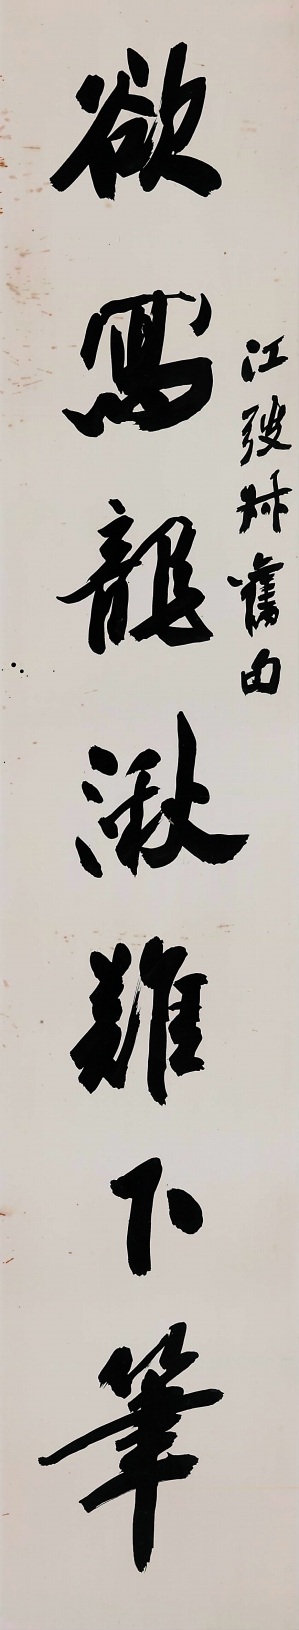 江弢叔舊句
欲寫龍湫難下筆